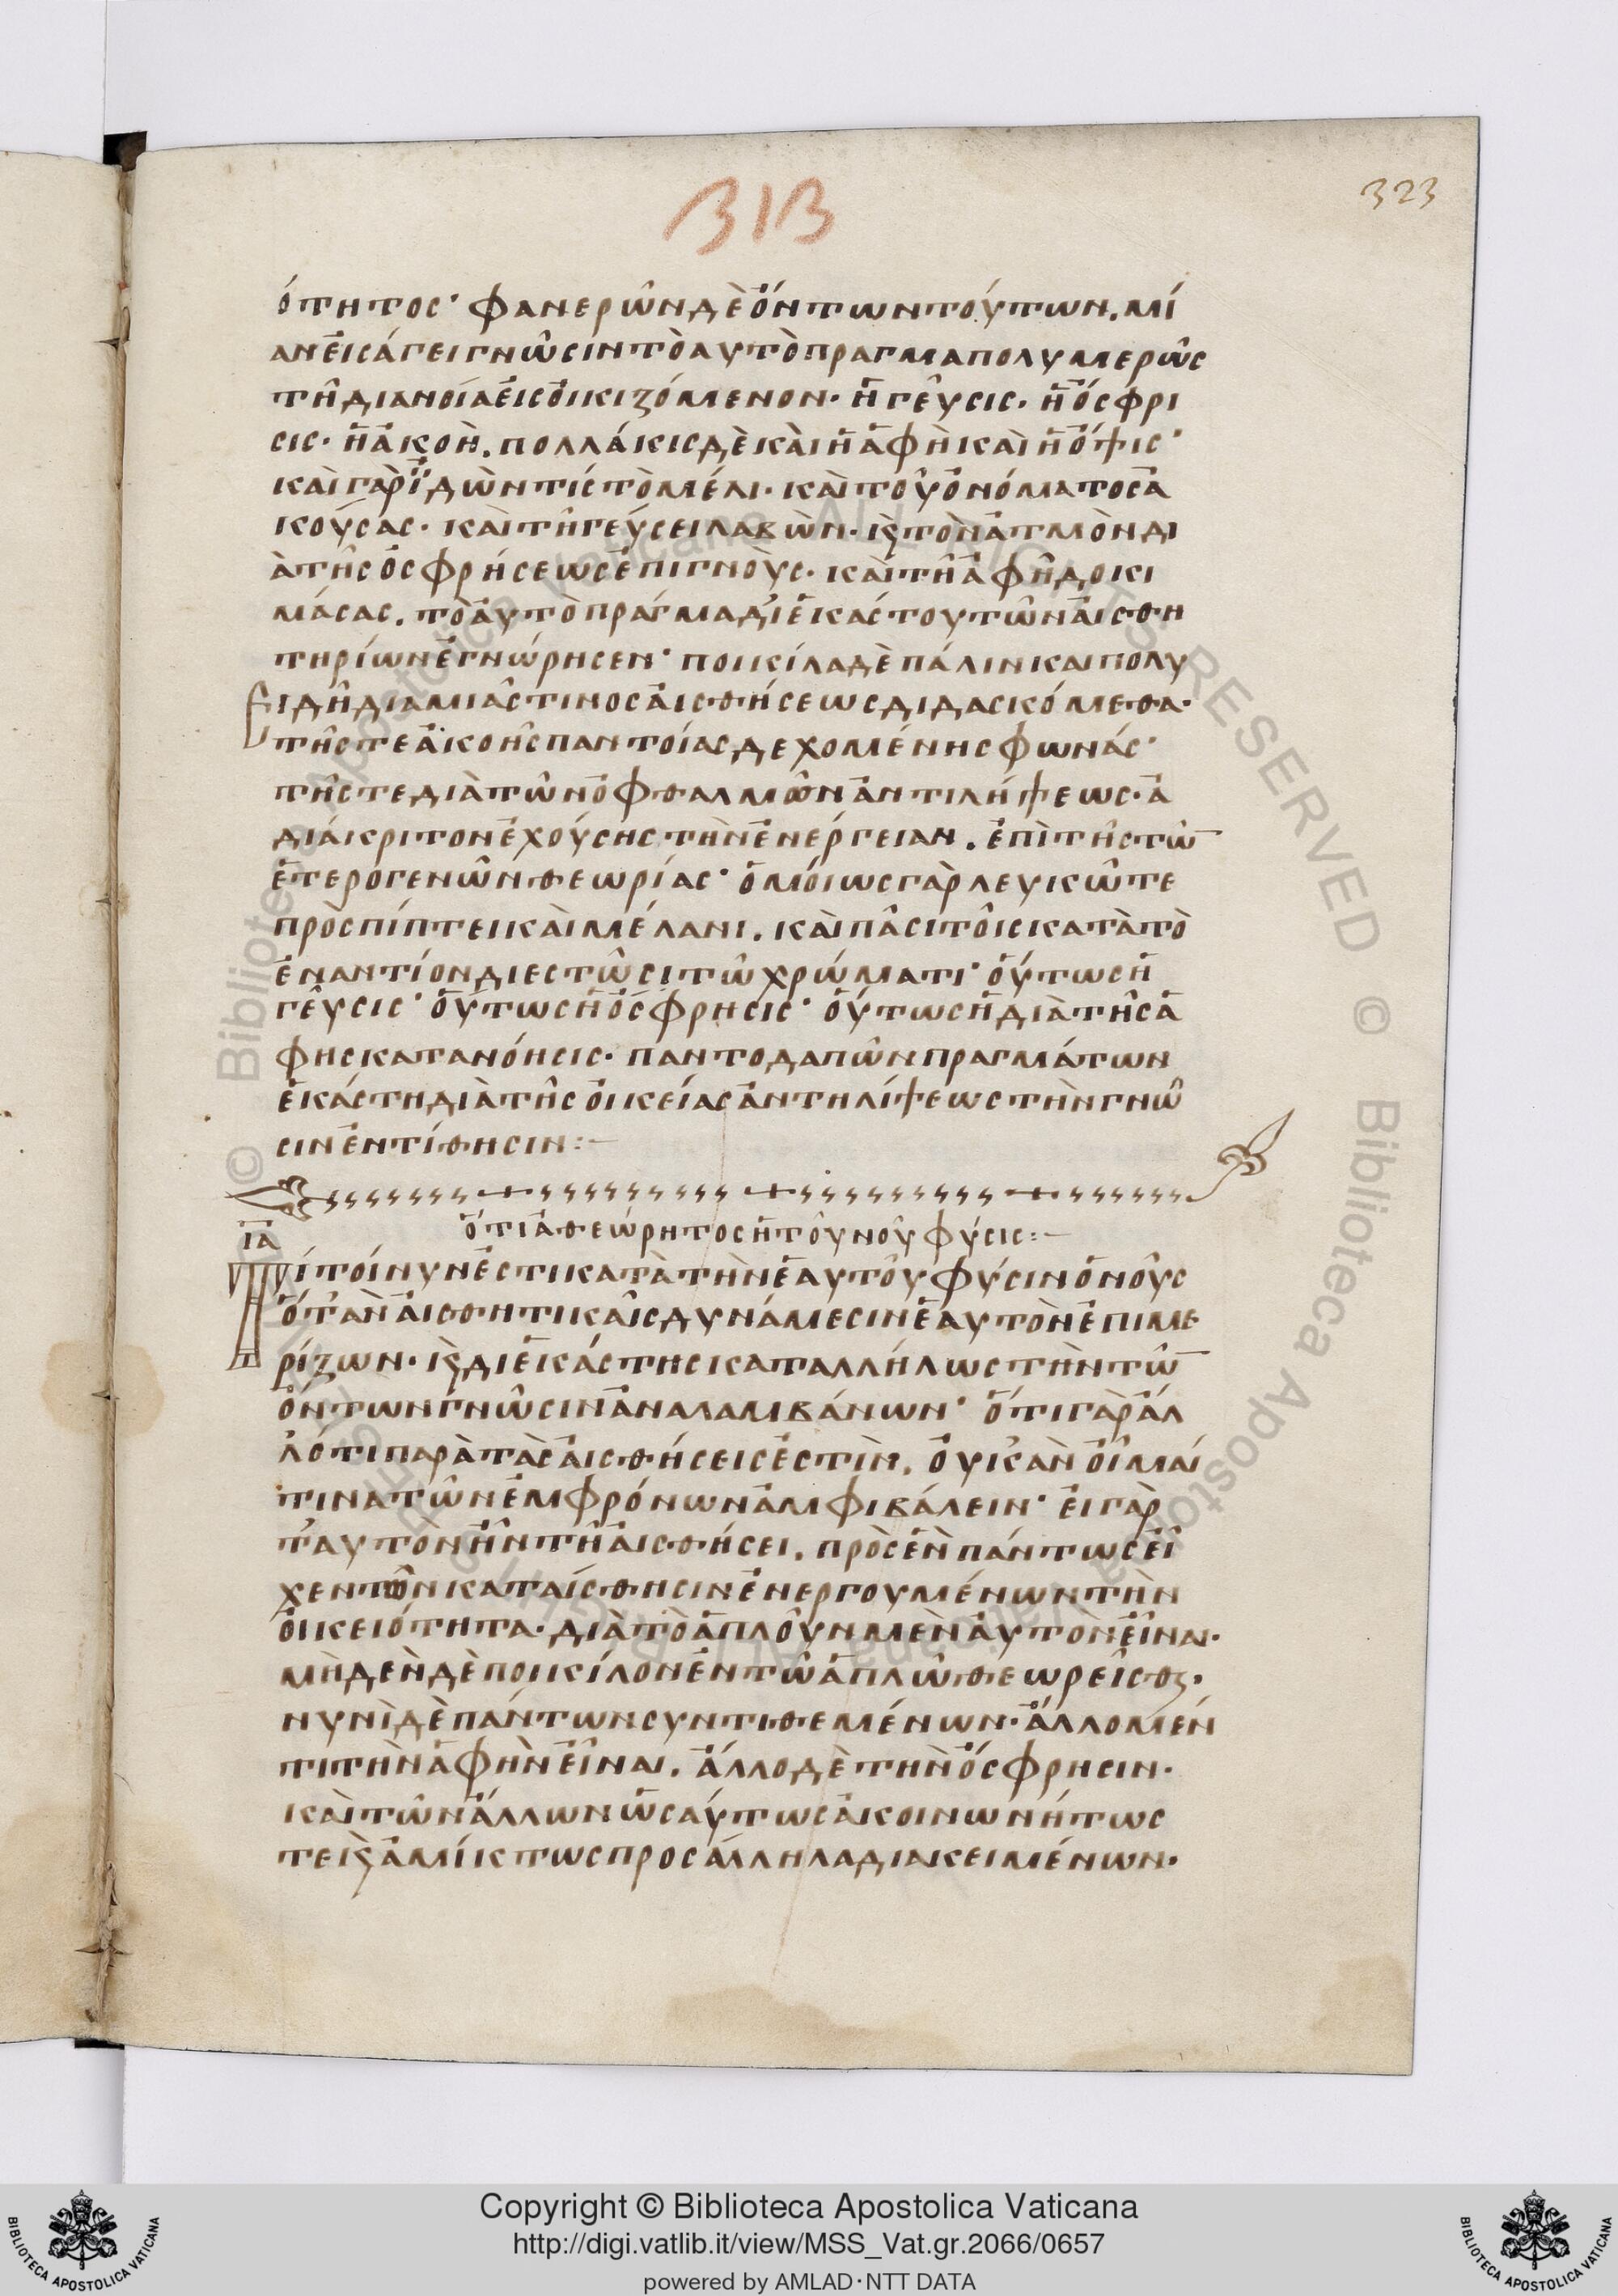 313
323
ότητος· φανερῶν δὲ ὄντων τούτων. μί
αν εἰσάγει γνῶσιν τὸ αυτὸ πραγμα πολυμερῶς
τῆ διανοία εἰσοικιζόμενον· ἡ γεῦσις· ἡ ὄσφρι
σις· ἡ ἀκοὴ. πολλάκις δὲ καὶ ἡ ἁφὴ καὶ ἡ ὄψις·
καὶ γὰρ ἰδὼν τίς τὸ μέλι· καὶ τοῦ ὀνόματος ἀ
κούσας· καὶ τῆ γεύσει λαβὼν· κ̀ τὸν ἀτμὸν δι
ὰ τῆς ὀσφρήσεως ἐπιγνοὺς· καὶ τῆ ἁφῆ δοκι
μάσας. τὸ ἀυτὸ πράγμα δι' ἑκάστου τῶν ἀισθη
τηρίων ἐγνώρησεν· ποικίλα δὲ πάλιν και πολυ
ειδῆ δια μιᾶς τινος ἀισθήσεως διδασκόμεθα·
τῆς τε ἀκοῆς παντοίας δεχομένης φωνάς·
τῆς τε διὰ τῶν ὀφθαλμῶν ἀντιλήψεως· ἀ
διάκριτον ἐχούσης τὴν ἐνέργειαν. ἐπὶ τῆς τῶ̅
ἑτερογενῶν θεωρίας· ὁμόιως γὰρ λευκῶ τε
πρὸσπίπτει καὶ μέλανι. καὶ πᾶσι τοῖς κατὰ τὸ
ἐναντίον διεστῶσι τῶ χρώματι· ὁύτως ἡ
γεῦσις· ὁύτως ἡ ὄσφρησις· ὁύτως ἡ διὰ τῆς ἁ
φης κατανόησις· παντοδαπῶν πραγμάτων
ἑκάστη διὰ τῆς ὀικείας ἀντηλίψεως τὴν γνῶ
σιν ἐντίθησιν:—
ὅτι ἀθεώρητος ἡ τοῦ νοῦ φύσις:—
ια
Τί τοίνυν ἐστι κατὰ τὴν ἑαυτοῦ φύσιν ὁ νοῦς
ὅτ' ἀν ἀισθητικαῖς δυνάμεσιν ἑαυτὸν ἐπιμε
ρίζων· κ̀ δι ἑκάστης καταλλήλως τὴν τῶ̅
ὄντων γνῶσιν ἀναλαμβάνων· ὅτι γὰρ ἄλ
λό τι παρὰ τὰς ἀισθήσεις ἐστὶν. ὀυκ' ἀν οἶμαί
τινα τῶν ἐμφρόνων ἀμφιβάλειν· ἐι γὰρ
τ' αυτὸν ἦν τῆ ἀισθήσει. πρὸς ἓν πάντως εἶ
χεν τῶν κατ αίσθησιν ἐνεργουμένων τὴν
ὀικειότητα· διὰ τὸ ἁπλοῦν μὲν ἀυτὸν εἶναι·
μὴδεν δὲ ποικίλον ἐν τῶ ἁπλῶ θεωρεῖσθ̣·
νυνὶ δὲ πάντων συντιθεμένων· ἄλλο μέν
τι τὴν ἁφὴν εἶναι. ἄλλο δὲ τὴν ὄσφρησιν·
καὶ τῶν ἄλλων ὡσαύτως ἀκοινωνήτως
τε κ̀ ἀμίκτως προς άλληλα διακειμένων·
Copyright © Biblioteca Apostolica Vaticana
http://digi.vatlib.it/view/MSS_Vat.gr.2066/0657
powered by AMLAD·NTT DATA